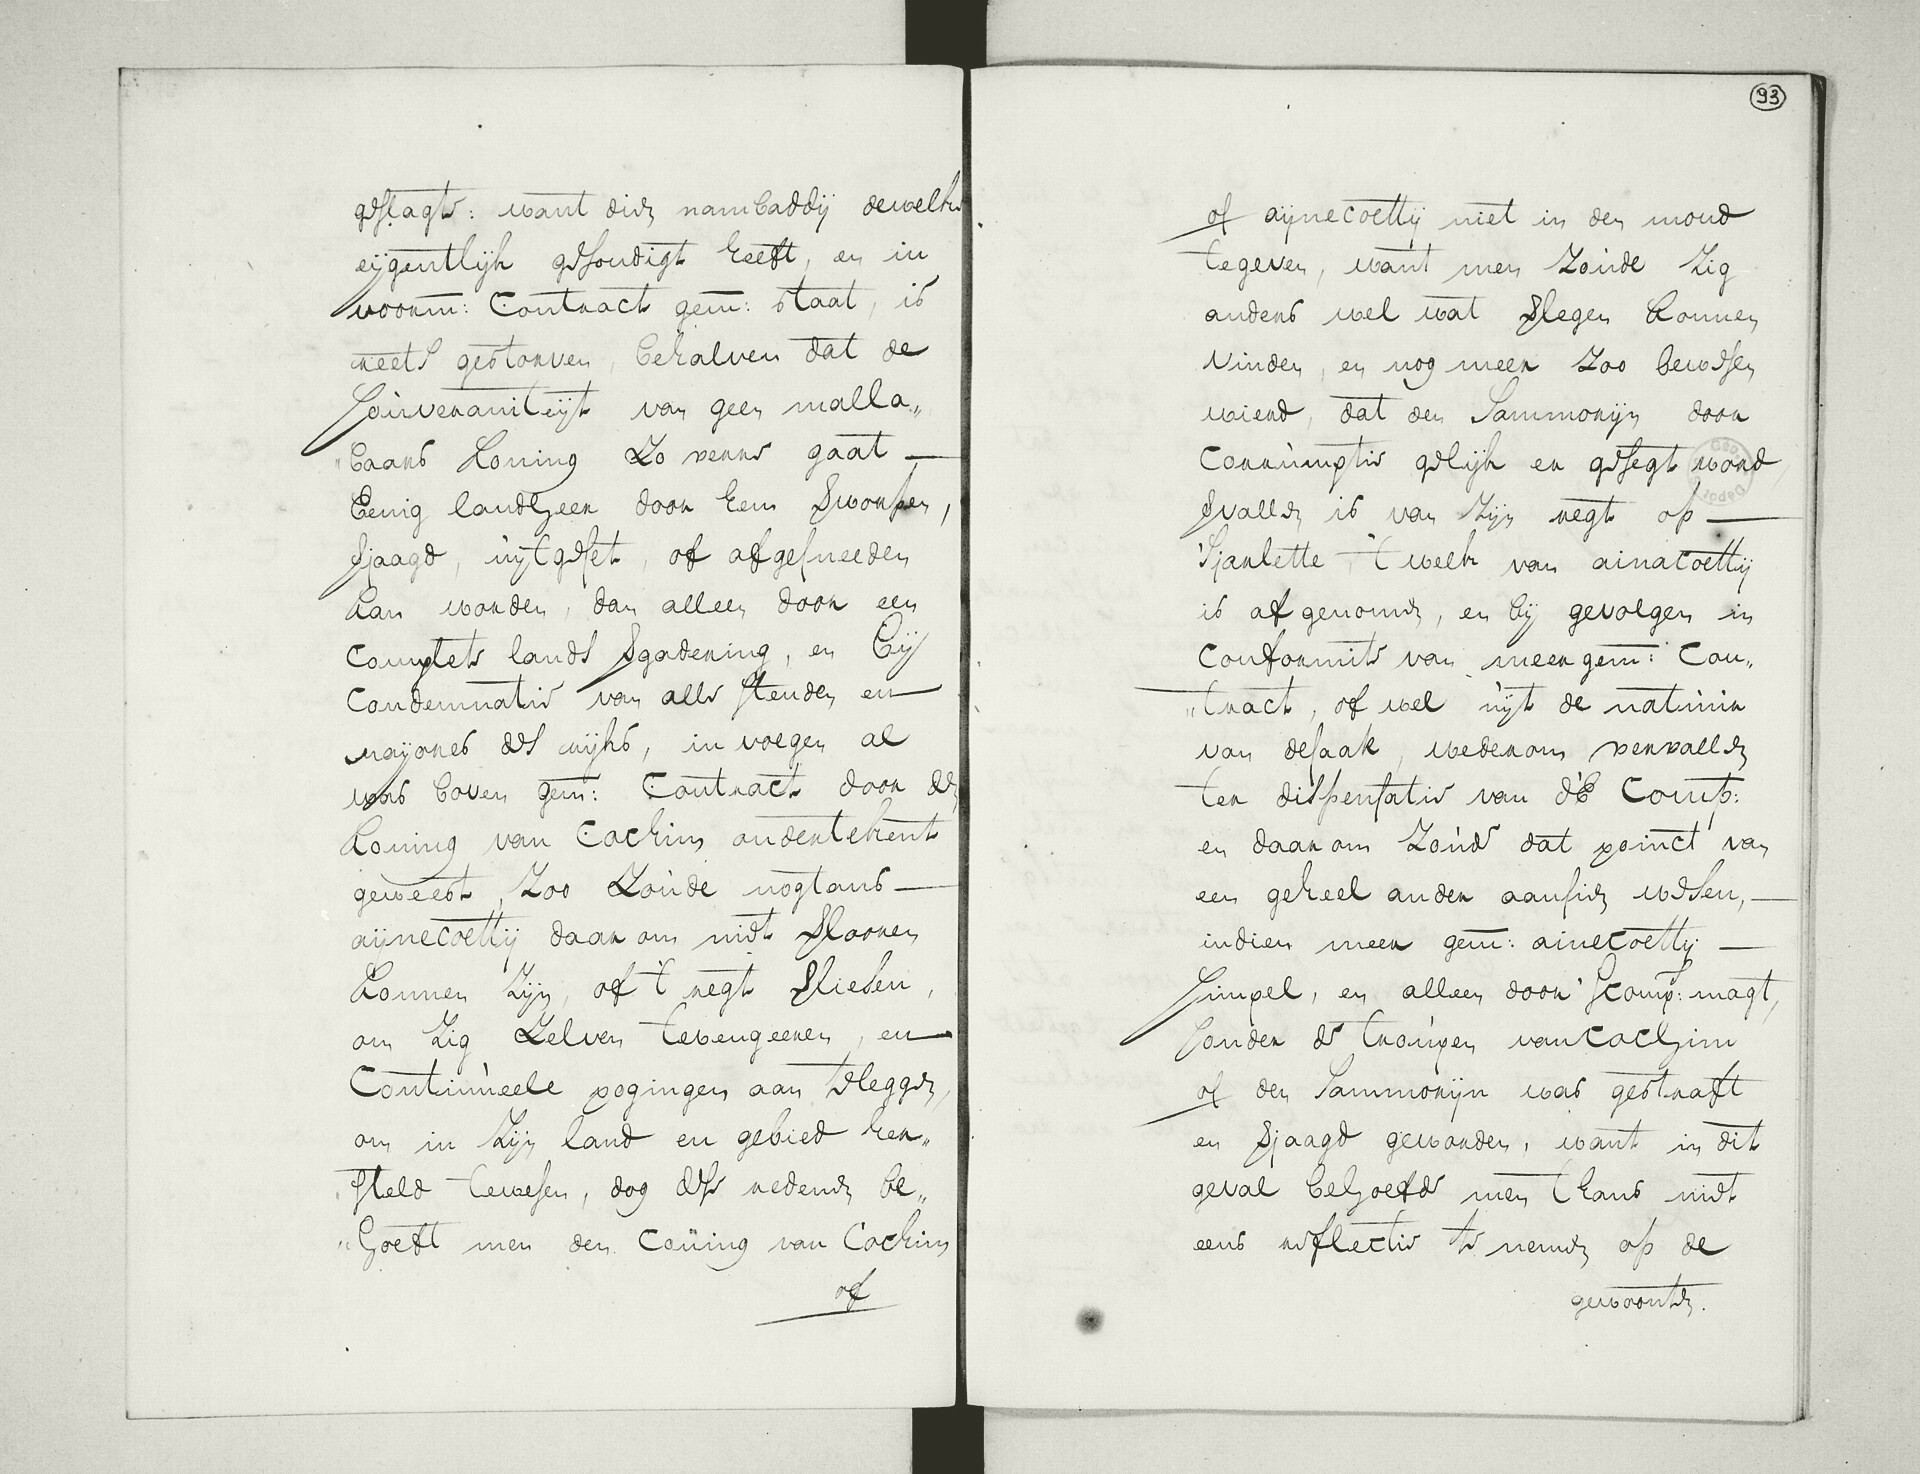 geslagte: want dien nambaddij dewelke
eijgentlijk gesondigt heeft, en in
voorm: Contract gem: staat, is
reets gestorven, behalven dat de
souveraniteijt van geen malla„
„baars Koning zo verre gaat —
Eenig landheer door hem verworpen,
verjaagd, uijtgeset, of afgesneeden
kan worden, dan alleen door een
Complete lands vergadering, en bij
Condemnatie van alle stenden en
majores des rijks, in voegen al
was boven gem: Contract door den
Koning van Cochim onderteekent
geweest, Zoo Zoude nogtans —
aijnecoettij daarom niet verlooren
Konnen Zijn, of 't regt verliesen,
om Zig Zelven tevengeeren, en
Continueele pogingen aan teleggen,
om in Zijn land en gebied her„
„steld tewesen, dog dese redenen be„
„hoeft men den Coning van Cochim
of
93
of aijnecoettij niet in den mond
tegeven, want men Zoude Zig
anders wel wat verlegen konnen
vinden, en nog meer Zoo bewesen
wierd, dat den Sammorijn door
Corrumptie gelijk er gesegt word,
vervallen is van Zijn regt op —
'Sjanlette 't welk van ainacoettij
is afgenomen, en bij gevolgen in
Conformite van meergem: Con„
„tract, of wel uijt de natuur
van desaak, wederom vervallen
ter dispensatie van d'E Comp:
en daarom Zoude dat poinct van
een geheel ander aansien wesen, —
indien meer gem: ainecoettij —
simpel, en alleen door 'sComp: magt,
sonder de troupen van Cochim
of den Sammorijn was gestraft
en verjaagd geworden, want in dit
geval behoefde men thans niet
eens reflectie te nemen op de
gewoonten.